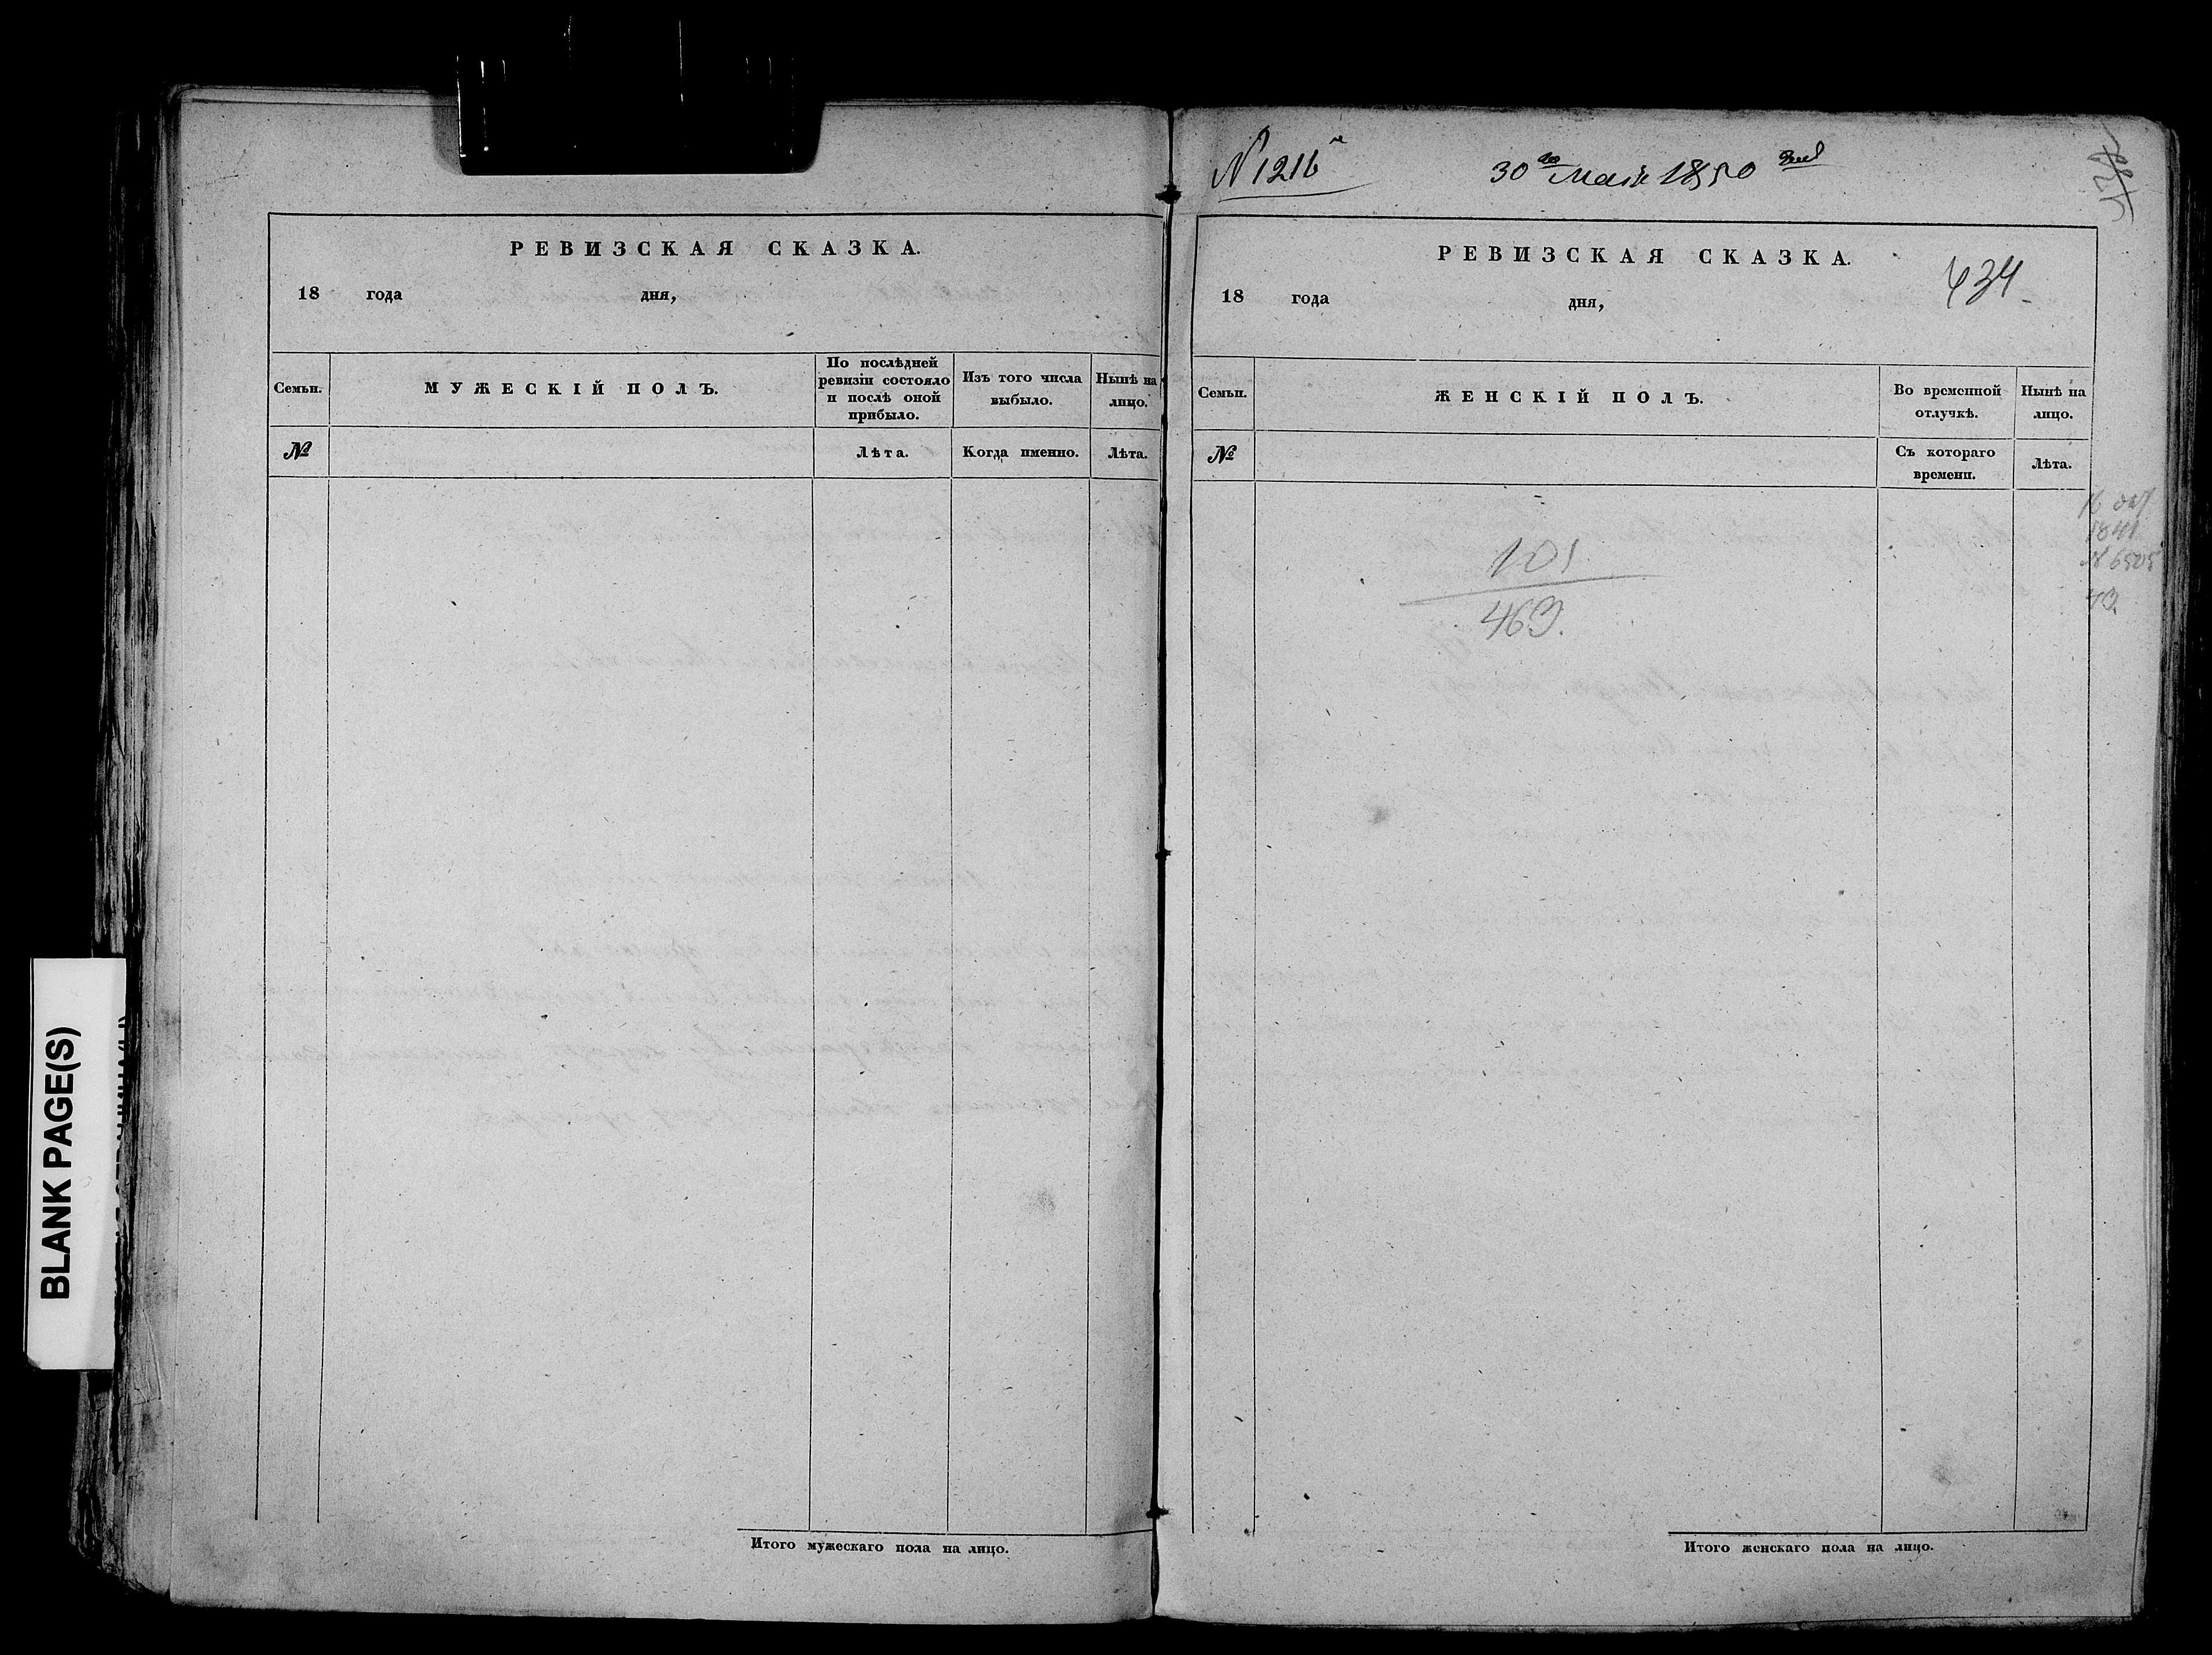 BLANK PAGE(S)
РЕВИЗСКАЯ СКАЗКА.
18 года дня,
Семьи.
МУЖЕСКІЙ ПОЛЪ.
По послѣдней
ревизіи состояло
и послѣ оной
прибыло.
Изъ того числа
выбыло.
Нынѣ на
лицо.
№
Лѣта.
Когда именно.
Лѣта.
Итого мужескаго пола на лицо.
N 1216
30 Маія 1850
РЕВИЗСКАЯ СКАЗКА.
434
18 года дня,
Семьи.
ЖЕНСКІЙ ПОЛЪ.
Во временной
отлучкѣ.
Нынѣ на
лицо.
№
Съ котораго
времени.
Лѣта.
101
463.
1841
№ 6505
Итого женскаго пола на лицо.